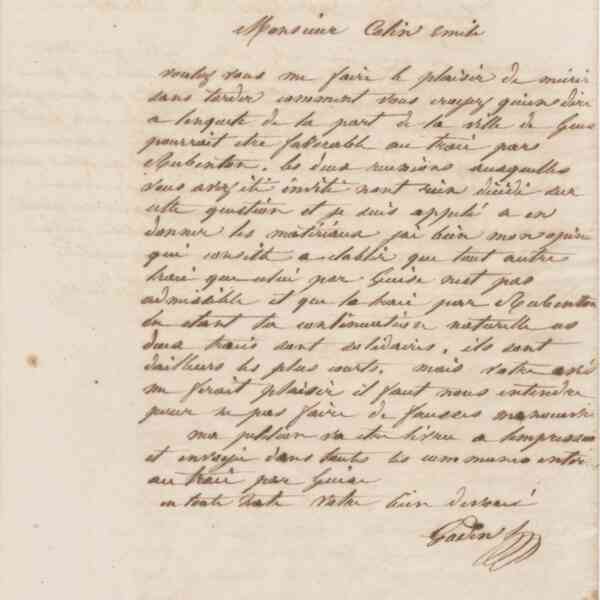 Monsieur Colin Emile
voulez vous me faire le plaisir de m'écrire
sans tarder comment vous croyez qu'un dire
a l'enquete de la part de la ville de Guise
pourrait etre favorable au tracé par
Aubenton. les deux reunions auxquelles
vous avez été invité n'ont rien décidé sur
cette question et je suis appelé a en
donner les matériaux j'ai bien mon opinion
qui consiste a etablir que tout autre
tracé que celui par Guise n'est pas
admissible et que le tracé par Aubenton
en etant la continuation naturelle ces
deux tracés sont solidaires, ils sont
d'ailleurs les plus courts. mais votre avis
me ferait plaisir il faut nous entendre
pour ne pas faire de fausses manoeuvres
ma petition va etre livrée a l'impression
et envoyée dans toutes les communes
au tracé par Guise
en toute hate votre bien devoué
Godin